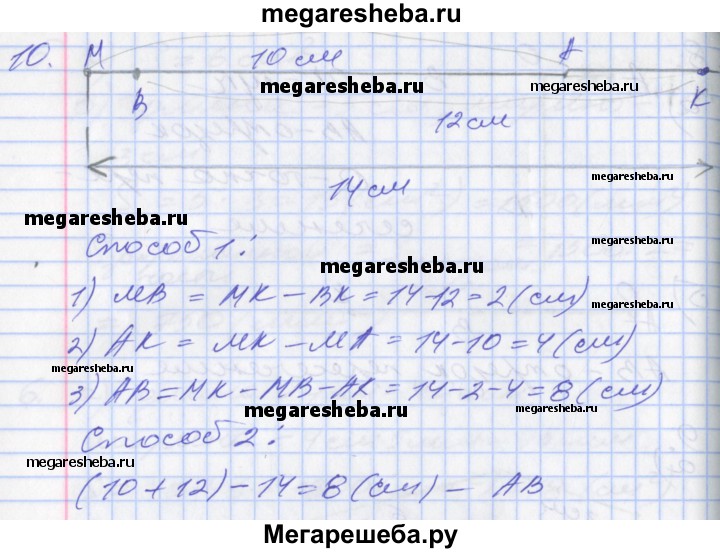 megaresheba.ru
10. M 10 см A
megaresheba.ru
megaresheba.ru
B K
12 см
megaresheba.ru
14 см
megaresheba.ru
Способ 1:
megaresheba.ru
1) MB = MK - BK = 14-12 = 2 (см)
megaresheba.ru
2) AK = MK - MA = 14-10 = 4 (см)
megaresheba.ru
3) AB = MK - MB - AK = 14-2-4 = 8 (см)
megaresheba.ru
megaresheba.ru
Способ 2:
megaresheba.ru
megaresheba.ru
(10+12)-14=8 (см) - AB
Мегарешеба.ру